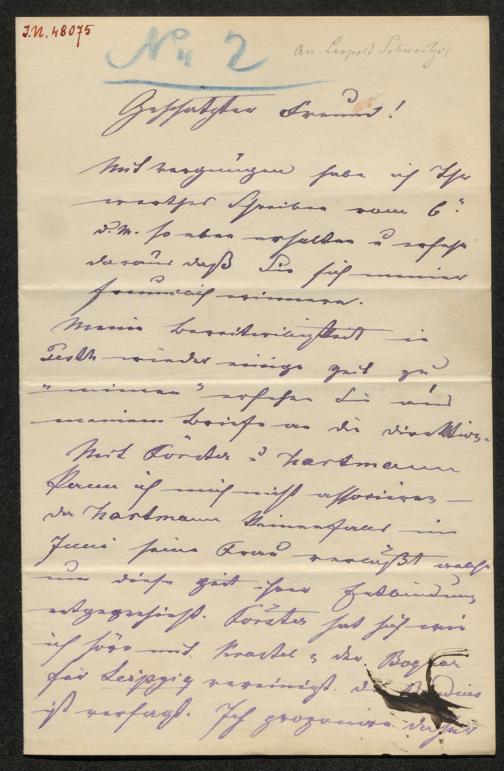 I.N. 48075
No 2
An Leopold Schweitzer
Geschätzter Freund!
Mit vergnügen habe ich Ihr
werthes Schreiben vom 6ten
d. M. so eben erhalten u ersehe
daraus daß Sie sich meiner
freundlich erinnern.
Meine bereitwilligkeit in
Pesth wieder einige Zeit zu
"mimen" ersehen Sie aus
meinem briefe an die direktion.
Mit Förster u Hartmann
kann ich mich nicht associren —
da Hartmann keinesfalls im
Juni seine Frau verläßt welche
um diese Zeit ihrer Entbindung
entgegensieht. Förster hat sich wie
ich höre mit Krastel u der Bognar
für Leipzig vereinigt.
ist versagt. Ich proponire daher